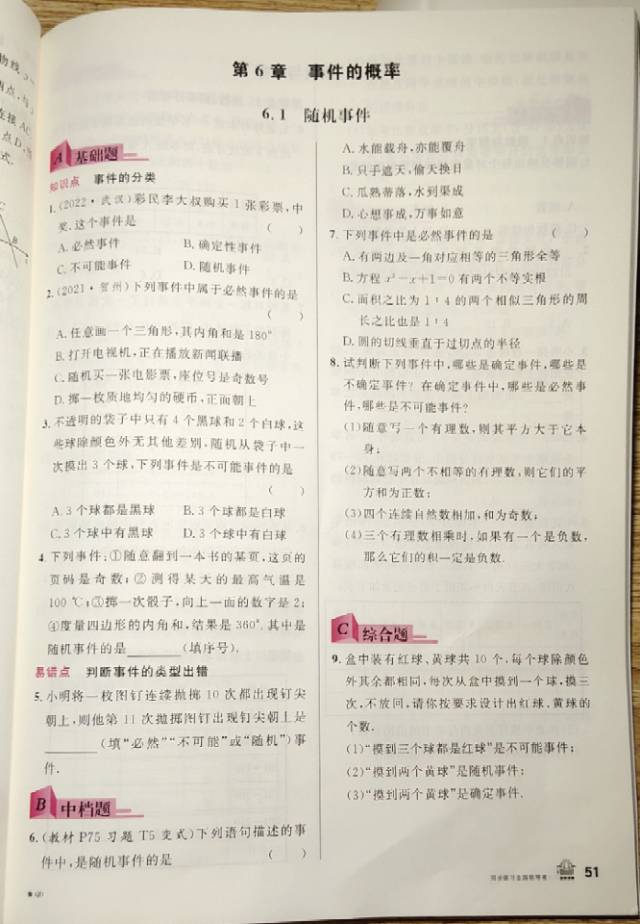 第6章 事件的概率
6.1 随机事件
A 基础题
知识点 事件的分类
1.(2022·武汉)彩民李大叔购买1张彩票,中
奖.这个事件是 ( )
A.必然事件 B.确定性事件
C.不可能事件 D.随机事件
2.(2021·贺州)下列事件中属于必然事件的是
( )
A.任意画一个三角形,其内角和是180°
B.打开电视机,正在播放新闻联播
C.随机买一张电影票,座位号是奇数号
D.掷一枚质地均匀的硬币,正面朝上
3.不透明的袋子中只有4个黑球和2个白球,这
些球除颜色外无其他差别,随机从袋子中一
次摸出3个球,下列事件是不可能事件的是
( )
A.3个球都是黑球 B.3个球都是白球
C.3个球中有黑球 D.3个球中有白球
4.下列事件:①随意翻到一本书的某页,这页的
页码是奇数;②测得某天的最高气温是
100℃;③掷一次骰子,向上一面的数字是2;
④度量四边形的内角和,结果是360°.其中是
随机事件的是______(填序号).
易错点 判断事件的类型出错
5.小明将一枚图钉连续抛掷10次都出现钉尖
朝上,则他第11次抛掷图钉出现钉尖朝上是
______(填“必然”“不可能”或“随机”)事
件.
B 中档题
6.(教材P75习题T5变式)下列语句描述的事
件中,是随机事件的是 ( )
A.水能载舟,亦能覆舟
B.只手遮天,偷天换日
C.瓜熟蒂落,水到渠成
D.心想事成,万事如意
7.下列事件中是必然事件的是 ( )
A.有两边及一角对应相等的三角形全等
B.方程x²-x+1=0有两个不等实根
C.面积之比为1∶4的两个相似三角形的周
长之比也是1∶4
D.圆的切线垂直于过切点的半径
8.试判断下列事件中,哪些是确定事件,哪些是
不确定事件?在确定事件中,哪些是必然事
件,哪些是不可能事件?
(1)随意写一个有理数,则其平方大于它本
身;
(2)随意写两个不相等的有理数,则它们的平
方和为正数;
(3)四个连续自然数相加,和为奇数;
(4)三个有理数相乘时,如果有一个是负数,
那么它们的积一定是负数.
C 综合题
9.盒中装有红球、黄球共10个,每个球除颜色
外其余都相同,每次从盒中摸到一个球,摸三
次,不放回,请你按要求设计出红球、黄球的
个数.
(1)“摸到三个球都是红球”是不可能事件;
(2)“摸到两个黄球”是随机事件;
(3)“摸到两个黄球”是确定事件.
51